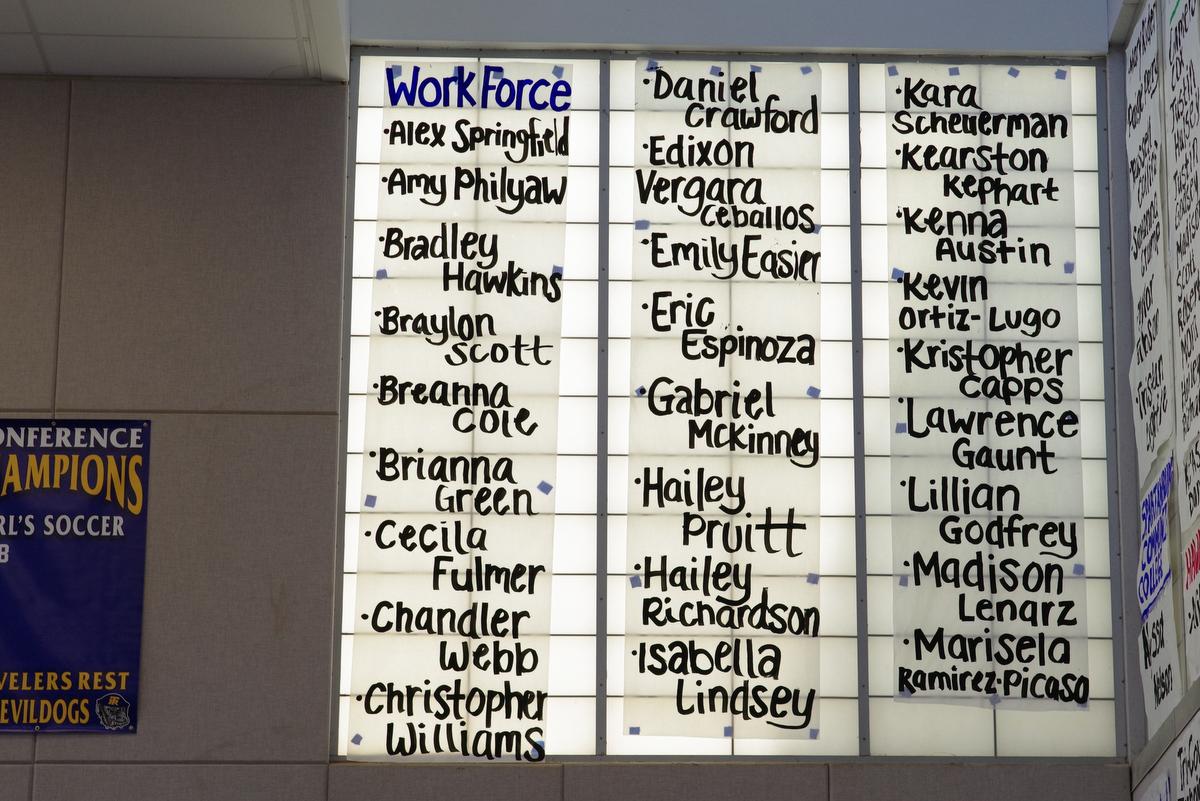 Work Force
·Alex Springfield
·Amy Philyaw
·Bradley
Hawkins
·Braylon
Scott
·Breanna
Cole
·Brianna
Green
·Cecila
Fulmer
·Chandler
Webb
·Christopher
Williams
·Daniel
Crawford
·Edixon
Vergara
Ceballos
·Emily Easler
·Eric
Espinoza
·Gabriel
McKinney
·Hailey
Pruitt
·Hailey
Richardson
·Isabella
Lindsey
·Kara
Scheuerman
·Kearston
Kephart
·Kenna
Austin
·Kevin
Ortiz-Lugo
·Kristopher
Capps
·Lawrence
Gaunt
·Lillian
Godfrey
·Madison
Lenarz
·Marisela
Ramirez-Picaso
ONFERENCE
AMPIONS
RL'S SOCCER
VELERS REST
EVILDOGS
TR
Nissa
Nelson